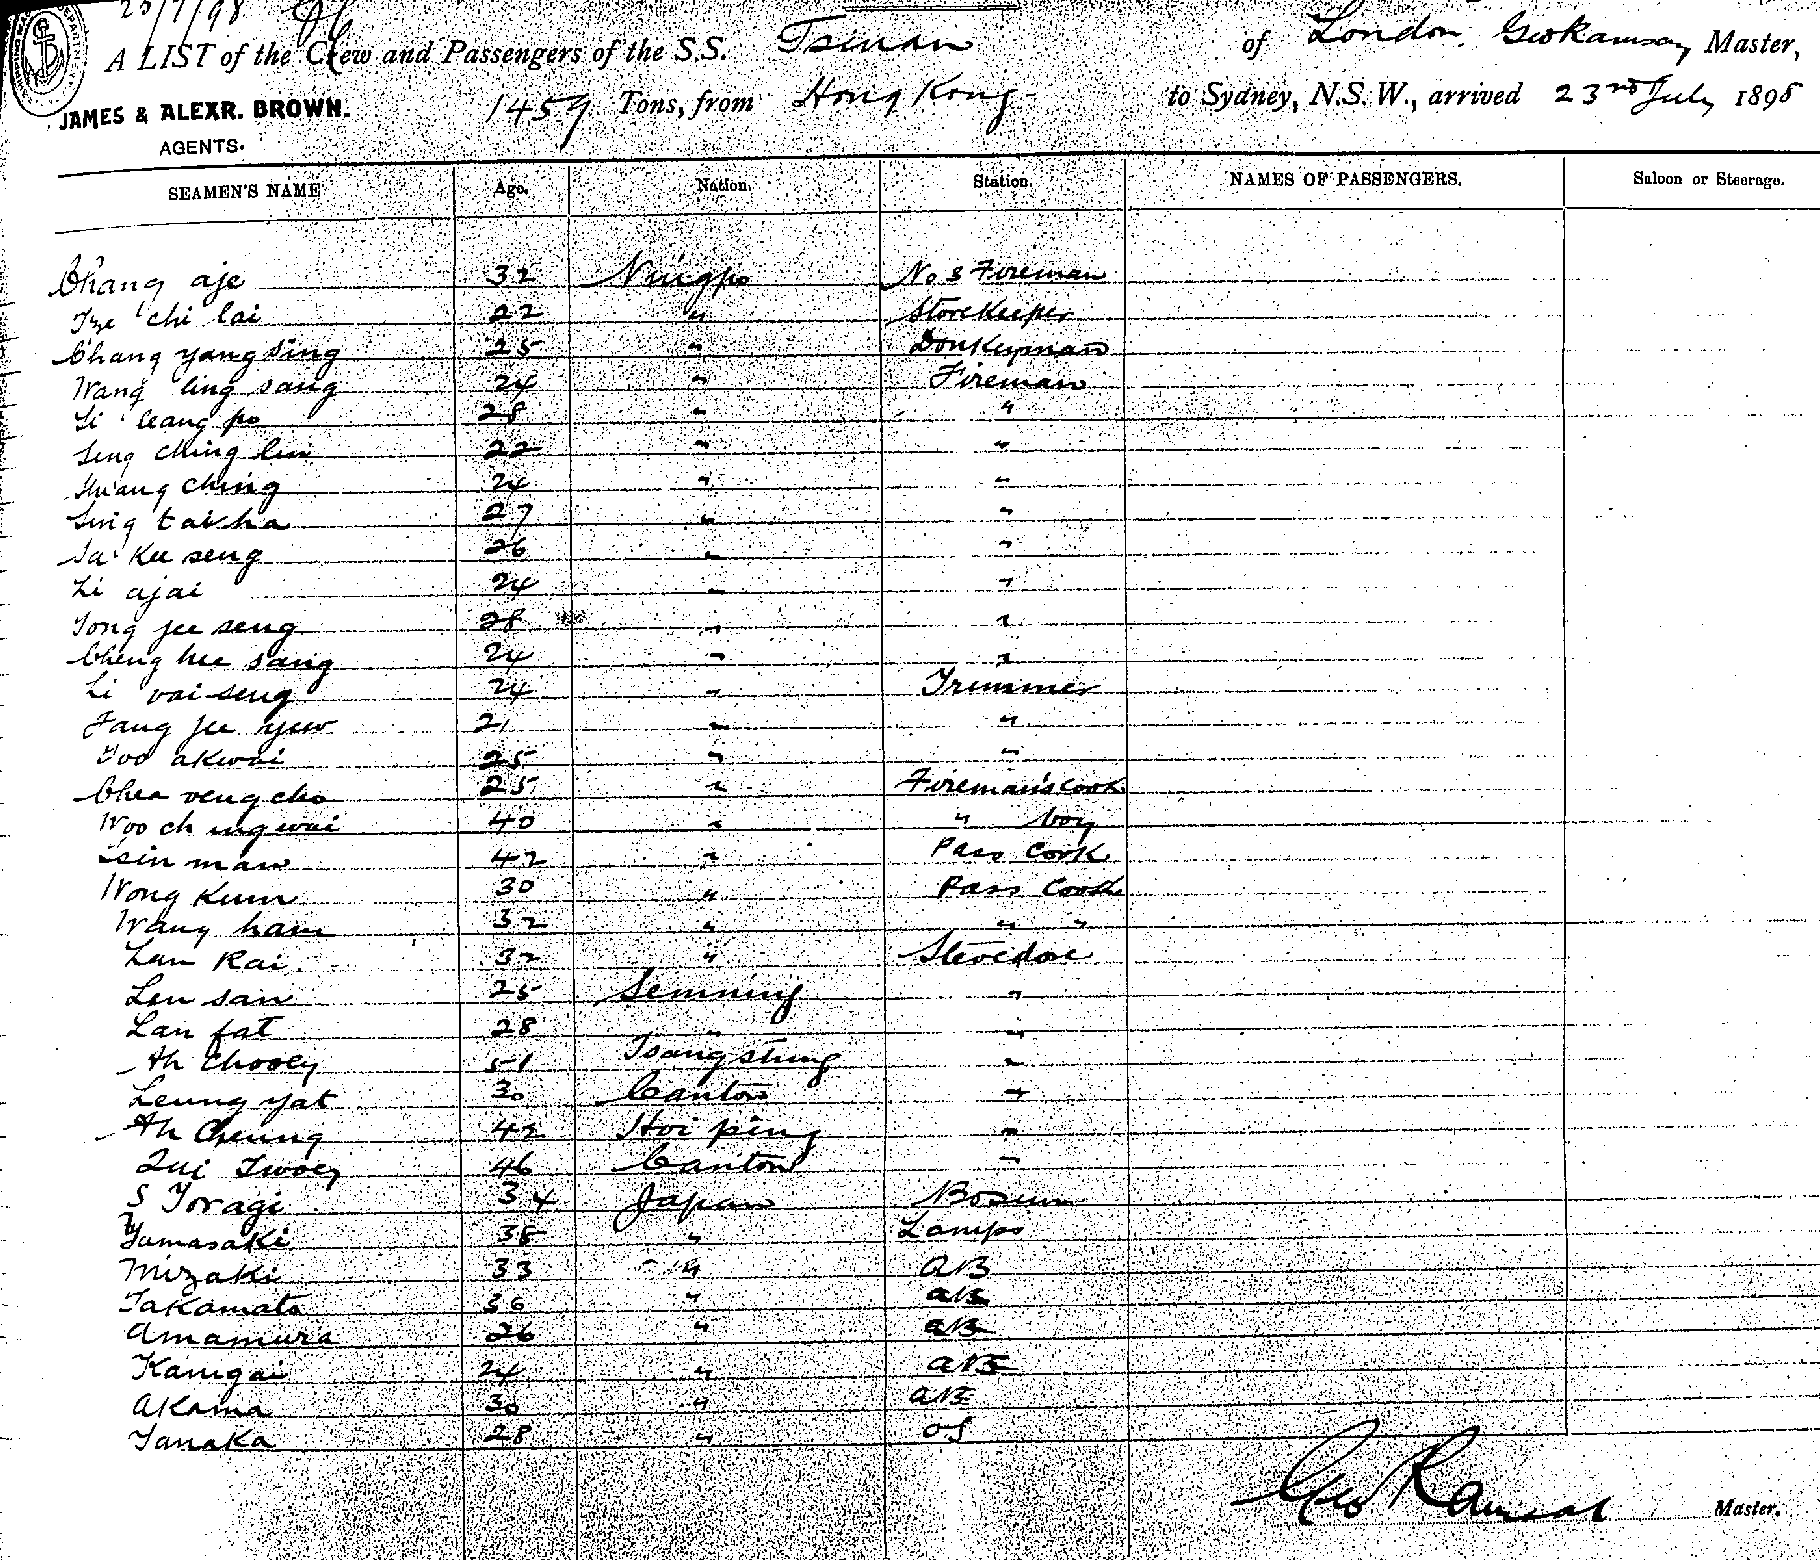 25/7/98
A LIST of the Crew and Passengers of the S.S. Tsinan of London, Geo Ramsay Master,
JAMES & ALEXR. BROWN.
AGENTS.
1459 Tons, from Hong Kong to Sydney, N.S.W., arrived 23rd July 1898
SEAMEN'S NAME Age. Nation. Station. NAMES OF PASSENGERS. Saloon or Steerage.
Chang aje 32 Ningpo No 3 Fireman
Tze chi lai 22 " Storekeeper
Chang yang sing 25 " Donkeyman
Wang ling sang 24 " Fireman
Li leang po 28 " "
Seng ching lin 22 " "
Hwang ching 24 " "
Sing tai ha 27 " "
Sa Kee seng 26 " "
Li ajai 24 " "
Tong jee seng 28 " "
Cheng hee sang 24 " "
Li vai seng 24 " Trimmer
Fang jee yew 21 " "
Foo akwai 25 " "
Chea veng cho 25 " Fireman's Cook
Woo ching wai 40 " " boy
Tsin man 42 " Pass Cook
Wong Kum 30 " Pass Cook
Wang ham 32 " " "
Lan Kai 32 " Stevedore
Len san 25 Semning "
Lan fat 28 " "
Ah Chooey 51 Tsangshing "
Leung yat 30 Canton "
Ah Cheung 42 Hoi ping "
46 Canton "
S Toragi 34 Japan Bosun
Yamasaki 38 " Lamps
Mizaki 33 " AB
Takamato 36 " AB
Amamura 26 " AB
Kamgai 24 " AB
Akama 30 " AB
Tanaka 28 " OS
Geo Ramsay Master.